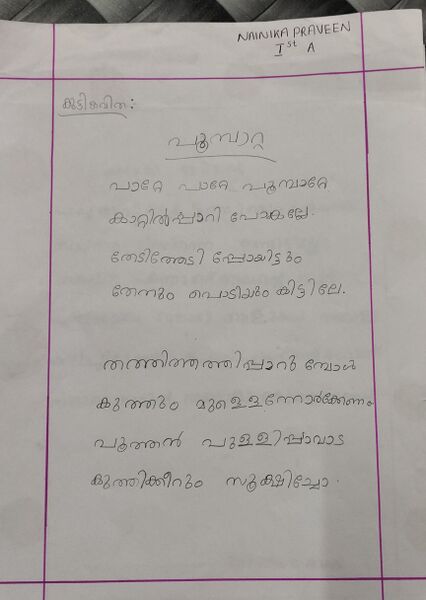 NAINIKA PRAVEEN
Ist A
കുട്ടികവിത:
പൂമ്പാറ്റ
പാറ്റേ പാറ്റേ പൂമ്പാറ്റേ
കാറ്റിൽപ്പാറി പോകല്ലേ.
തേടിത്തേടി പ്പോയിട്ടും
തേനും പൊടിയും കിട്ടീലേ.
തത്തിത്തത്തിപ്പാറു മ്പോൾ
കുത്തും മുള്ളെന്നോർക്കേണം
പൂത്തൻ പുള്ളിപ്പാവാട
കുത്തിക്കീറും സൂക്ഷിച്ചോ.